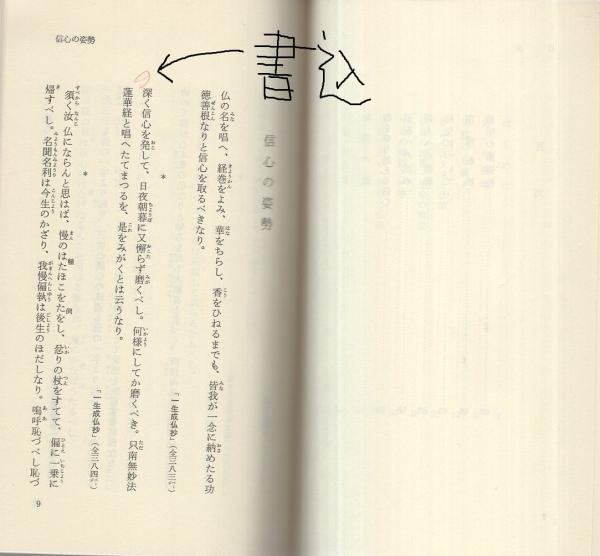 書込
信心の姿勢
仏の名を唱へ、経巻をよみ、華をちらし、香をひねるまでも、皆我が一念に納めたる功
徳善根なりと信心を取るべきなり。
「一生成仏抄」(全三八三㌻)
*
深く信心を発して、日夜朝暮に又懈らず磨くべし。何様にしてか磨くべき。只南無妙法
蓮華経と唱へたてまつるを、是をみがくとは云うなり。
「一生成仏抄」(全三八四㌻)
*
須く汝仏にならんと思はば、慢のはたほこをたをし、忿りの杖をすてて、偏に一乗に
帰すべし。名聞名利は今生のかざり、我慢偏執は後生のほだしなり。嗚呼恥づべし恥づ
信心の姿勢
9